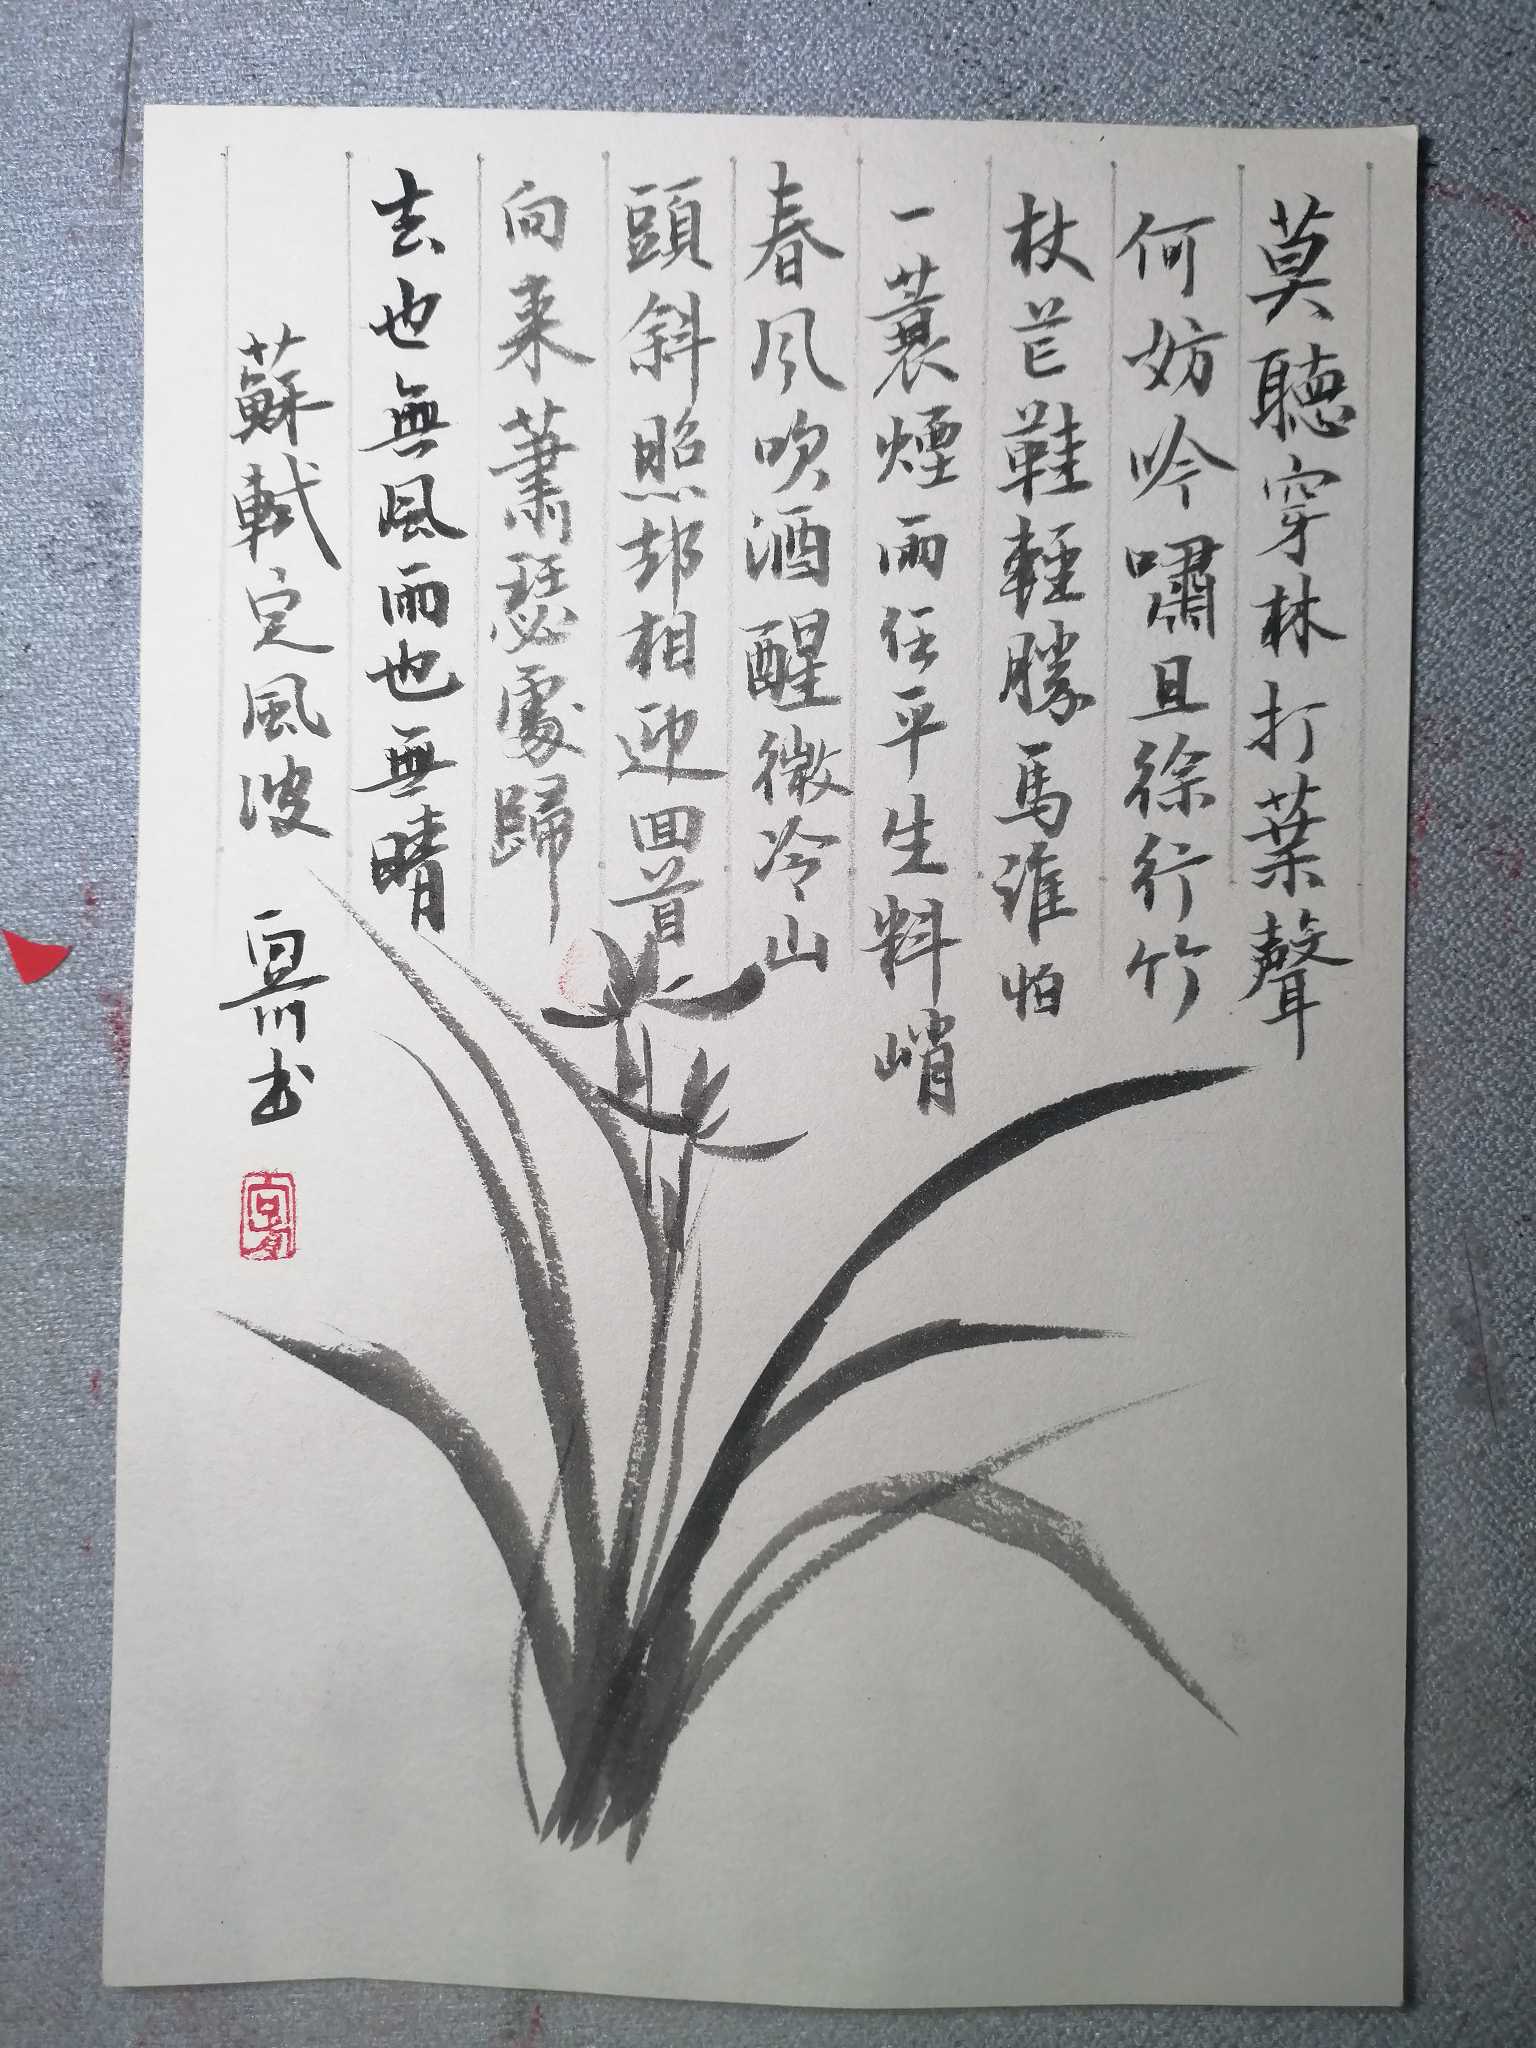 莫聽穿林打葉聲
何妨吟嘯且徐行竹
杖芒鞋輕勝馬誰怕
一蓑煙雨任平生料峭
春风吹酒醒微冷山
頭斜照却相迎回首
向来蕭瑟處歸
去也無風雨也無晴
蘇軾定風波